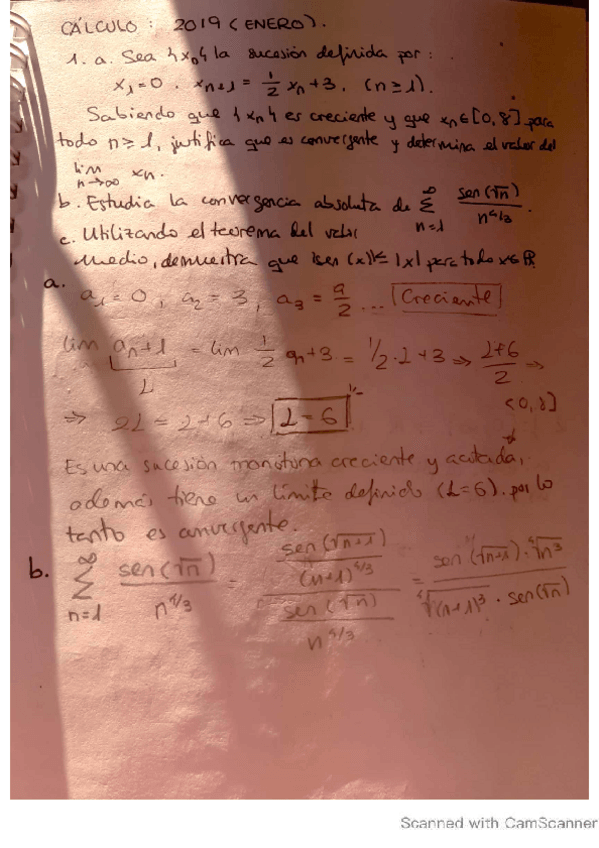 CÁLCULO: 2019 (ENERO).
1. a. Sea {xn} la sucesión definida por:
x1=0. xn+1 = 1/2 xn+3. (n≥1).
Sabiendo que {xn} es creciente y que xn∈[0,8] para
todo n≥1, justifica que es convergente y determina el valor del
lim n→∞ xn.
b. Estudia la convergencia absoluta de ∞ Σ n=1 sen(√n) / n^4/3.
c. Utilizando el teorema del valor
medio, demuestra que |sen(x)|≤|x| para todo x∈ℝ
a.
a1=0, a2=3, a3=9/2 ... Creciente
lim an+1 = lim 1/2 an+3 = 1/2·L+3 ⇒ L+6/2 ⇒
L
⇒ 2L = L+6 ⇒ L=6
<0,8]
Es una sucesión monótona creciente y acotada,
además tiene un límite definido (L=6). por lo
tanto es convergente.
b. ∞ Σ n=1 sen(√n) / n^4/3 = sen(√n+1) / (n+1)^4/3 / sen(√n) / n^4/3 = sen(√n+1)·⁴√n³ / ⁴√(n+1)³ · sen(√n)
Scanned with CamScanner